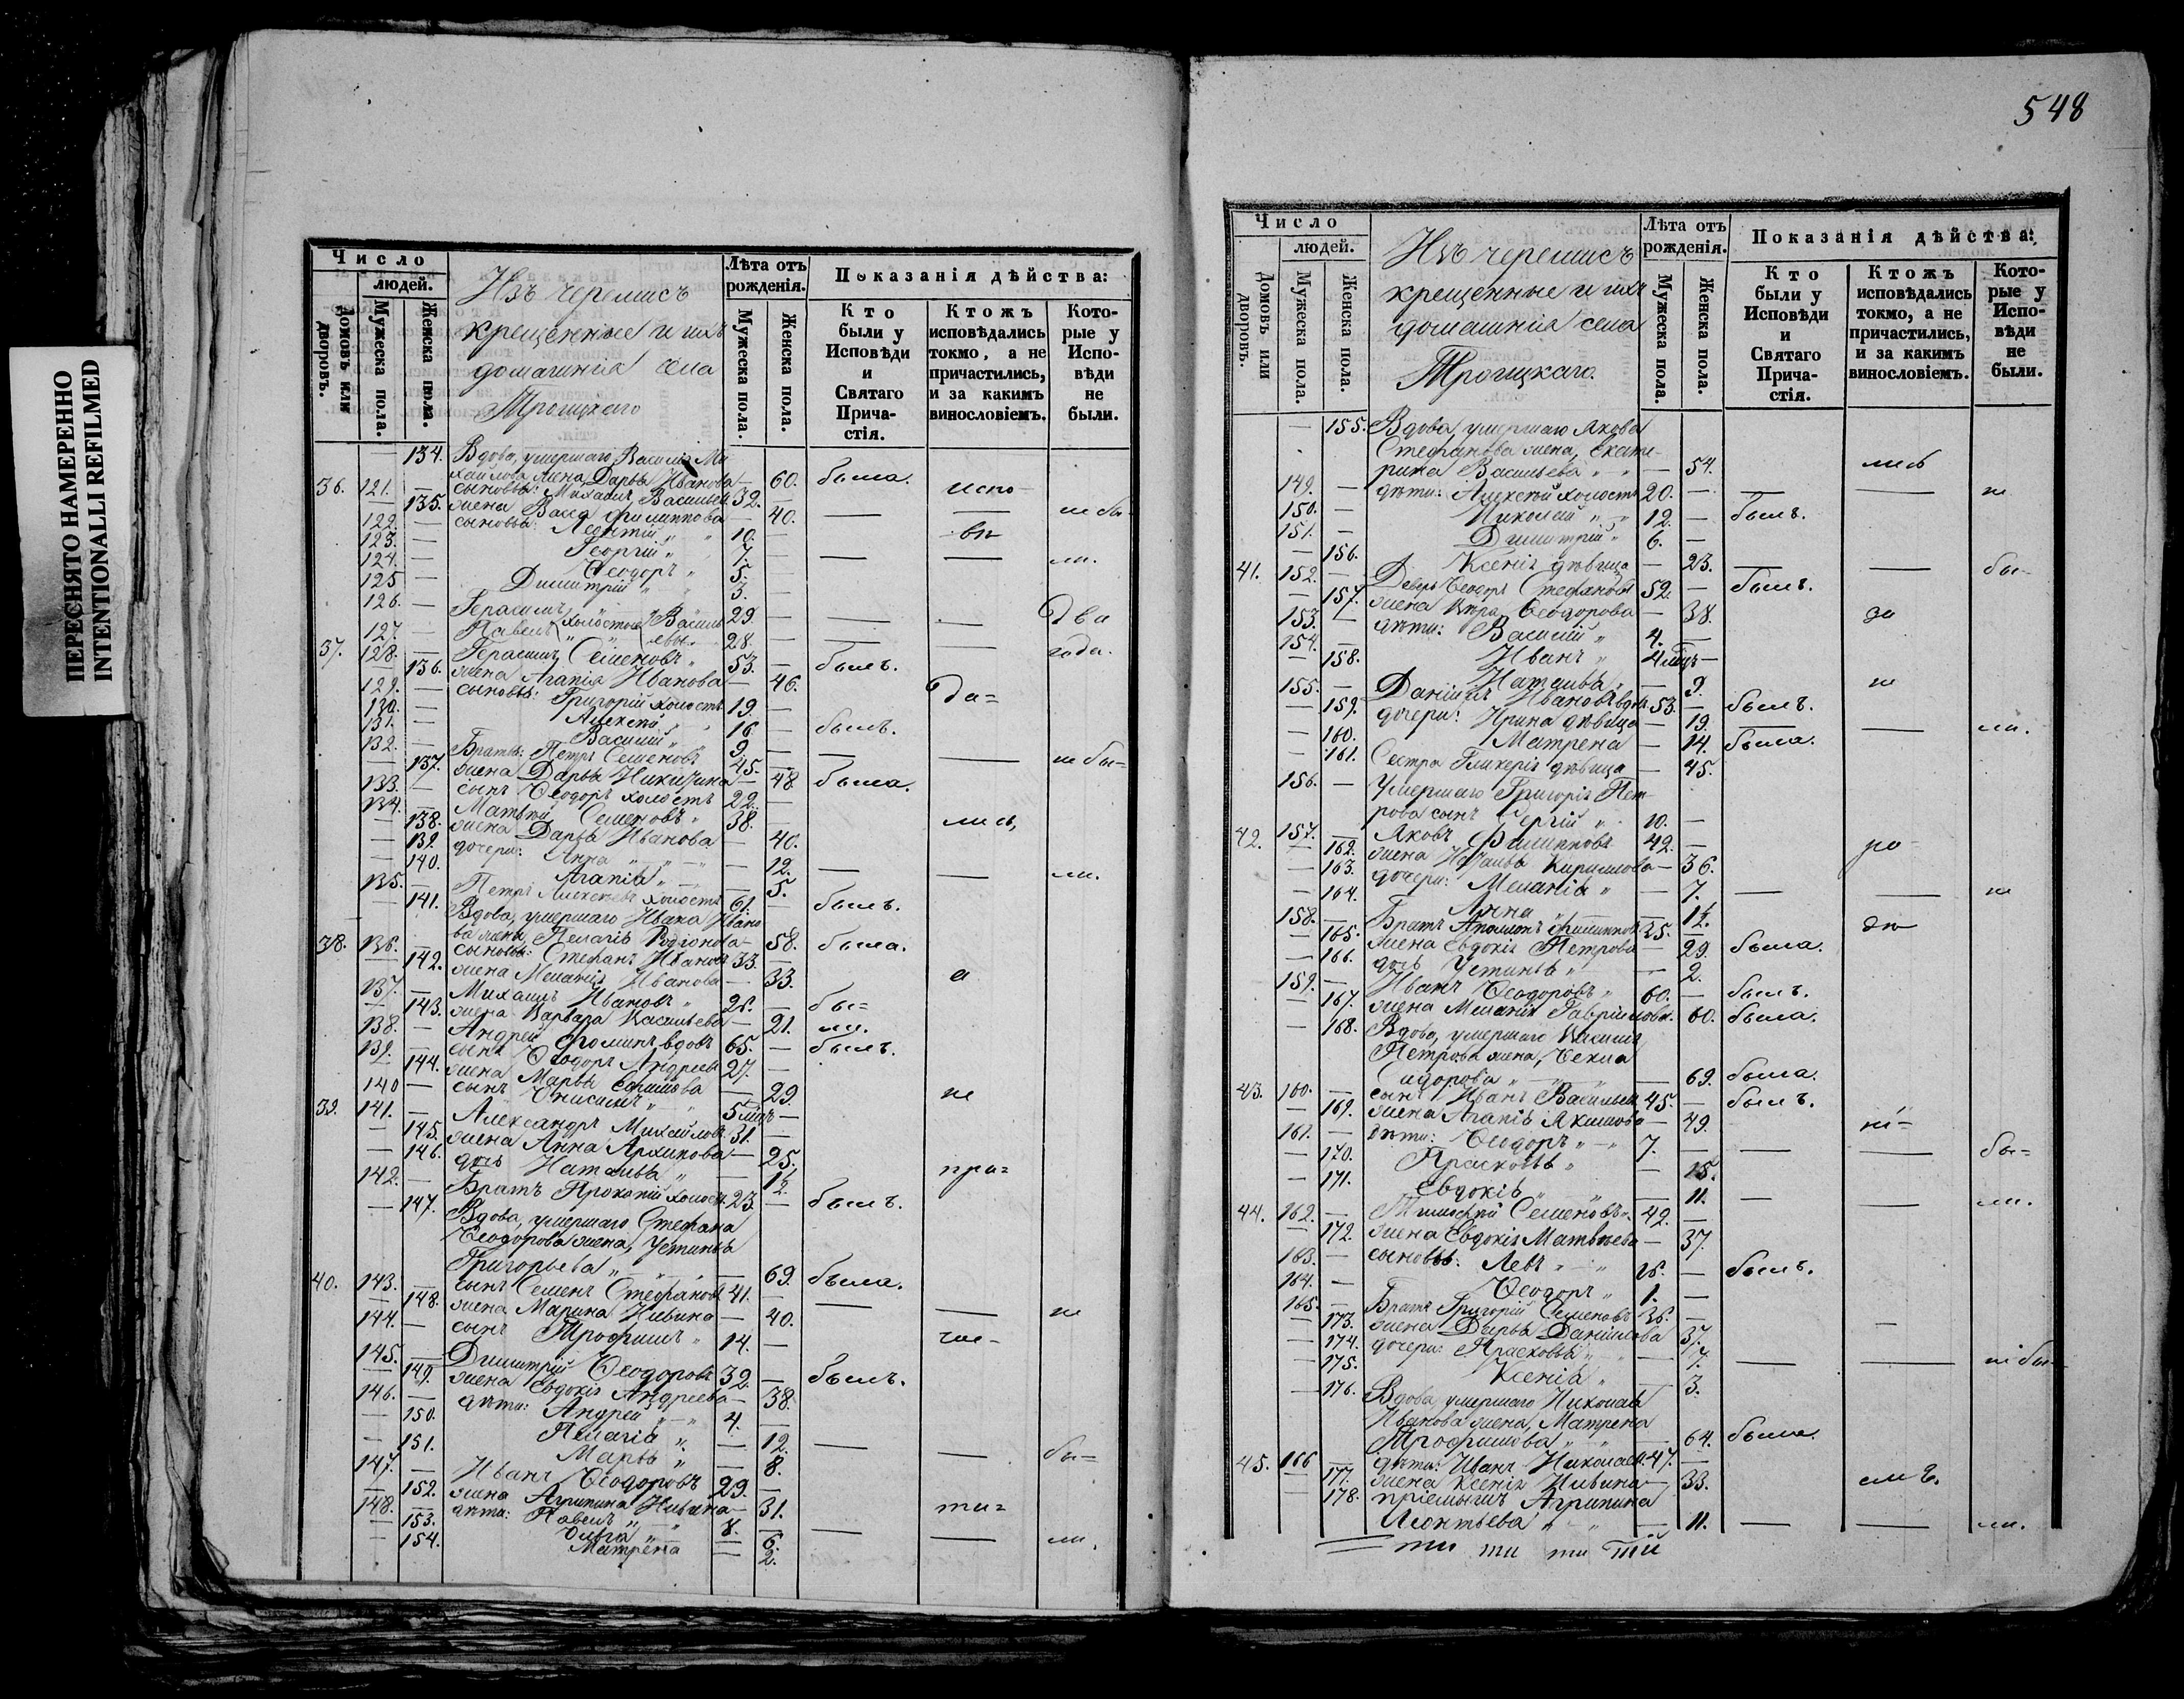 ПЕРЕСНЯТО НАМЕРЕННО
INTENTIONALLI REFILMED
Число
людей.
Домовъ или дворовъ.
Мужеска пола.
Женска пола.
Изъ черемисъ
крещенные и ихъ
домашнія села
Троицкаго
Лѣта отъ
рожденія.
Мужеска пола.
Женска пола.
Показанія дѣйства:
Кто
были у
Исповѣди
и
Святаго
Прича-
стія.
Ктожъ
исповѣдались
токмо, а не
причастились,
и за какимъ
винословіемъ.
Кото-
рые у
Испо-
вѣди
не
были.
— 134. Вдова, умершаго Василія Ми
хайлова жена, Дарья Иванова — 60. была.
36. 121. — сыновья: Михаилъ Васильевъ 32. испо
135. жена Васса Филиппова — 40. — — не бы-
122. — сыновья: Леонтій „ 10. — вѣ
123. — Георгій „ 7. — — ли.
124. — Ѳеодоръ „ 5.
125 — Димитрій „ 3. —
126. — Герасимъ холостые Василь 29. — — Два
127. — Павелъ „ евы 28. — — года.
37. 128. — Герасимъ Семеновъ „ 53. — былъ.
136. жена Агапія Иванова — 46. да=
129. — сыновья: Григорій холостъ 19. —
130. — Алексѣй „ 16. — былъ.
131. — Василій „ 9. — — — не бы=
132. — Братъ: Петръ Семеновъ 45. —
— 137. жена Дарья Никитина — 48 была.
133. — сынъ Ѳеодоръ холостъ 22. —
134. — Матвѣй Семеновъ „ 38. лись,
— 138. жена Дарья Иванова — 40.
— 139. дочери: Анна „ — 12.
— 140. Агапія „ — 5. — — ли.
135. — Петръ Алексѣевъ холостъ 61. — былъ.
— 141. Вдова, умершаго Ивана Ивано
ва жена, Пелагія Родіонова — 58. была.
38. 136. — сыновья: Стефанъ Ивановъ 33. —
— 142. жена Меланія Иванова — 33. а
137. — Михаилъ Ивановъ „ 26. — бы=
— 143. жена Варвара Васильева — 21. ли.
138. — Андрей Фоминъ, вдовъ 65. — былъ.
139. — сынъ Ѳеодоръ Андреевъ 27. —
— 144. жена Марья Ефимова — 29. не
140 — сынъ Онисимъ „ 5 мцъ —
39. 141. — Александръ Михайловъ 31. —
— 145. жена Анна Архипова — 25.
— 146. дочь Наталья „ — 1/2. при=
142. — Братъ Прокопій холостъ 23. — былъ.
— 147. Вдова, умершаго Стефана
Ѳеодорова жена, Устинья
Григорьева „ — 69. была.
40. 143. — сынъ Семенъ Стефановъ 41. —
— 148. жена Марина Ильина — 40. — — не
144. — сынъ Трофимъ „ 14. — час-
145. — Димитрій Ѳеодоровъ 32. — былъ.
— 149. жена Евдокія Андреева — 38.
146. — дѣти: Андрей „ 4. —
— 150. Пелагія „ — 12. — — бы=
— 151. Марья „ — 8.
147. — Иванъ Ѳеодоровъ 29. —
— 152. жена Агрипина Ильина — 31. ти=
148. — дѣти: Павелъ „ 8. —
— 153. Ольга „ — 6. — — ли.
— 154. Матрена — 2.
548
Число
людей.
Домовъ или дворовъ.
Мужеска пола.
Женска пола.
Изъ черемисъ
крещенные и ихъ
домашнія села
Троицкаго.
Лѣта отъ
рожденія.
Мужеска пола.
Женска пола.
Показанія дѣйства:
Кто
были у
Исповѣди
и
Святаго
Прича-
стія.
Ктожъ
исповѣдались
токмо, а не
причастились,
и за какимъ
винословіемъ.
Кото-
рые у
Испо-
вѣди
не
были.
— 155. Вдова, умершаго Якова
Стефанова жена, Екате-
рина Васильева „ — 54. лись
149. — дѣти: Алексѣй холостъ 20. — — — не
150. — Николай „ 12. — былъ.
151. — Димитрій „ 6. —
— 156. Ксенія дѣвица — 23. — — бы-
41. 152. — Деверь Ѳеодоръ Стефановъ 52. — былъ.
— 157. жена Вѣра Ѳеодорова — 38. за
153. — дѣти: Василій „ 4. —
154. — Иванъ „ 4 мцъ —
— 158. Наталья „ — 9. не
155. — Даніилъ Ивановъ вдовъ 53. — былъ.
— 159. дочери: Ирина дѣвица — 19. — — ли.
— 160. Матрена — 14. была.
— 161. Сестра Гликерія дѣвица — 45.
156. — Умершаго Григорія Пет-
рова сынъ Сергій „ 10. —
42. 157. — Яковъ Филипповъ 42. — ра-
— 162. жена Наталья Кирилова — 36.
— 163. дочери: Меланія „ — 7. — — не
— 164. Анна „ — 1 1/2. дѣ
158. — Братъ Филипповъ 35. —
— 165. жена Евдокія Петрова — 29. была.
— 166. дочь Устинья „ — 2.
159. — Иванъ Ѳеодоровъ „ 60. — былъ.
— 167. жена Меланія Гавріилова. 60. была.
— 168. Вдова, умершаго Василія
Петрова жена, Ѳекла
Сидорова „ — 69. была.
43. 160. — сынъ Иванъ Васильевъ 45. — былъ.
— 169. жена Агапія Якимова — 49. ні=
161. — дѣти: Ѳеодоръ „ 7. — — — бы=
— 170. Прасковья „ — 15.
— 171. Евдокія „ — 11. — — ли.
44. 162. — Тимоѳей Семеновъ „ 42. —
— 172. жена Евдокія Матвѣева — 37.
163. — сыновья: Левъ „ 16. — былъ.
164. — Ѳеодоръ „ 1. —
165. — Братъ Григорій Семеновъ 36. —
— 173. жена Дарья Даніилова 37.
— 174. дочери: Прасковья „ — 7. — — не бы-
— 175. Ксенія „ — 3.
— 176. Вдова, умершаго Николая
Иванова жена, Матрена
Трофимова „ — 64. была.
45. 166 — дѣти: Иванъ Николаевъ 47. —
— 177. жена Ксенія Ильина — 33. емъ.
— 178. пріемышъ Агрипина
Леонтьева „ — 11. — — ли.